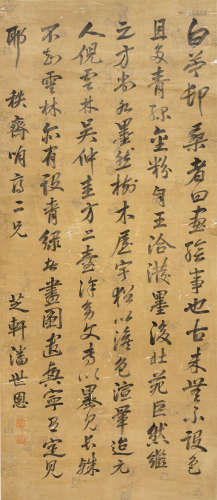 白苧邨桑者曰畫繪事也古来無不設色
且多青綠金粉自王洽潑墨後北苑巨然繼
之方尚水墨然樹木屋宇猶以澹色渲暈迨元
人倪雲林吳仲圭方方壺徐幼文專以墨見長殊
不知雲林亦有設青綠者畫圖遣興寧有定見
耶 秩齋二兄
芝軒潘世恩